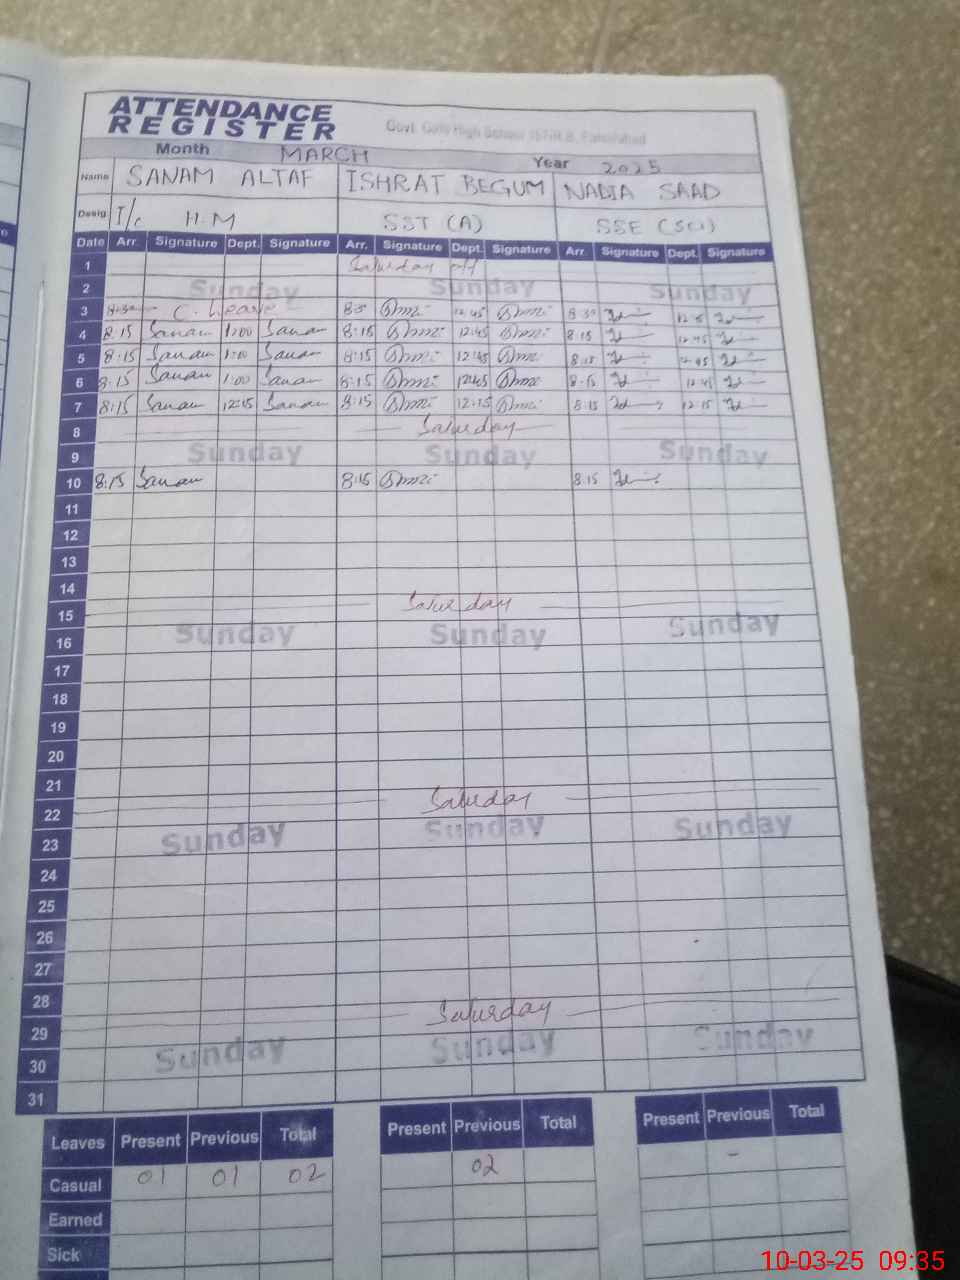 ATTENDANCE
REGISTER
Govt. Girls High School
Month MARCH Year 2025
Name SANAM ALTAF ISHRAT BEGUM NADIA SAAD
Desig. I/c H.M SST (A) SSE (Sci)
Date Arr. Signature Dept. Signature Arr. Signature Dept. Signature Arr. Signature Dept. Signature
1 Saturday off
2 Sunday Sunday Sunday
3 8:30 C. Leave 8:30 12:45 8:30 12:45
4 8:15 Sanam 1:00 Sanam 8:15 12:45 8:15 12:45
5 8:15 Sanam 1:00 Sanam 8:15 12:45 8:15 12:45
6 8:15 Sanam 1:00 Sanam 8:15 12:45 8:15 12:45
7 8:15 Sanam 12:15 Sanam 8:15 12:15 8:15 12:15
8 Saturday
9 Sunday Sunday Sunday
10 8:15 Sanam 8:15 8:15
11
12
13
14
15 Saturday
16 Sunday Sunday Sunday
17
18
19
20
21
22 Saturday
23 Sunday Sunday Sunday
24
25
26
27
28
29 Saturday
30 Sunday Sunday Sunday
31
Leaves Present Previous Total Present Previous Total Present Previous Total
Casual 01 01 02 02 -
Earned
Sick
10-03-25 09:35